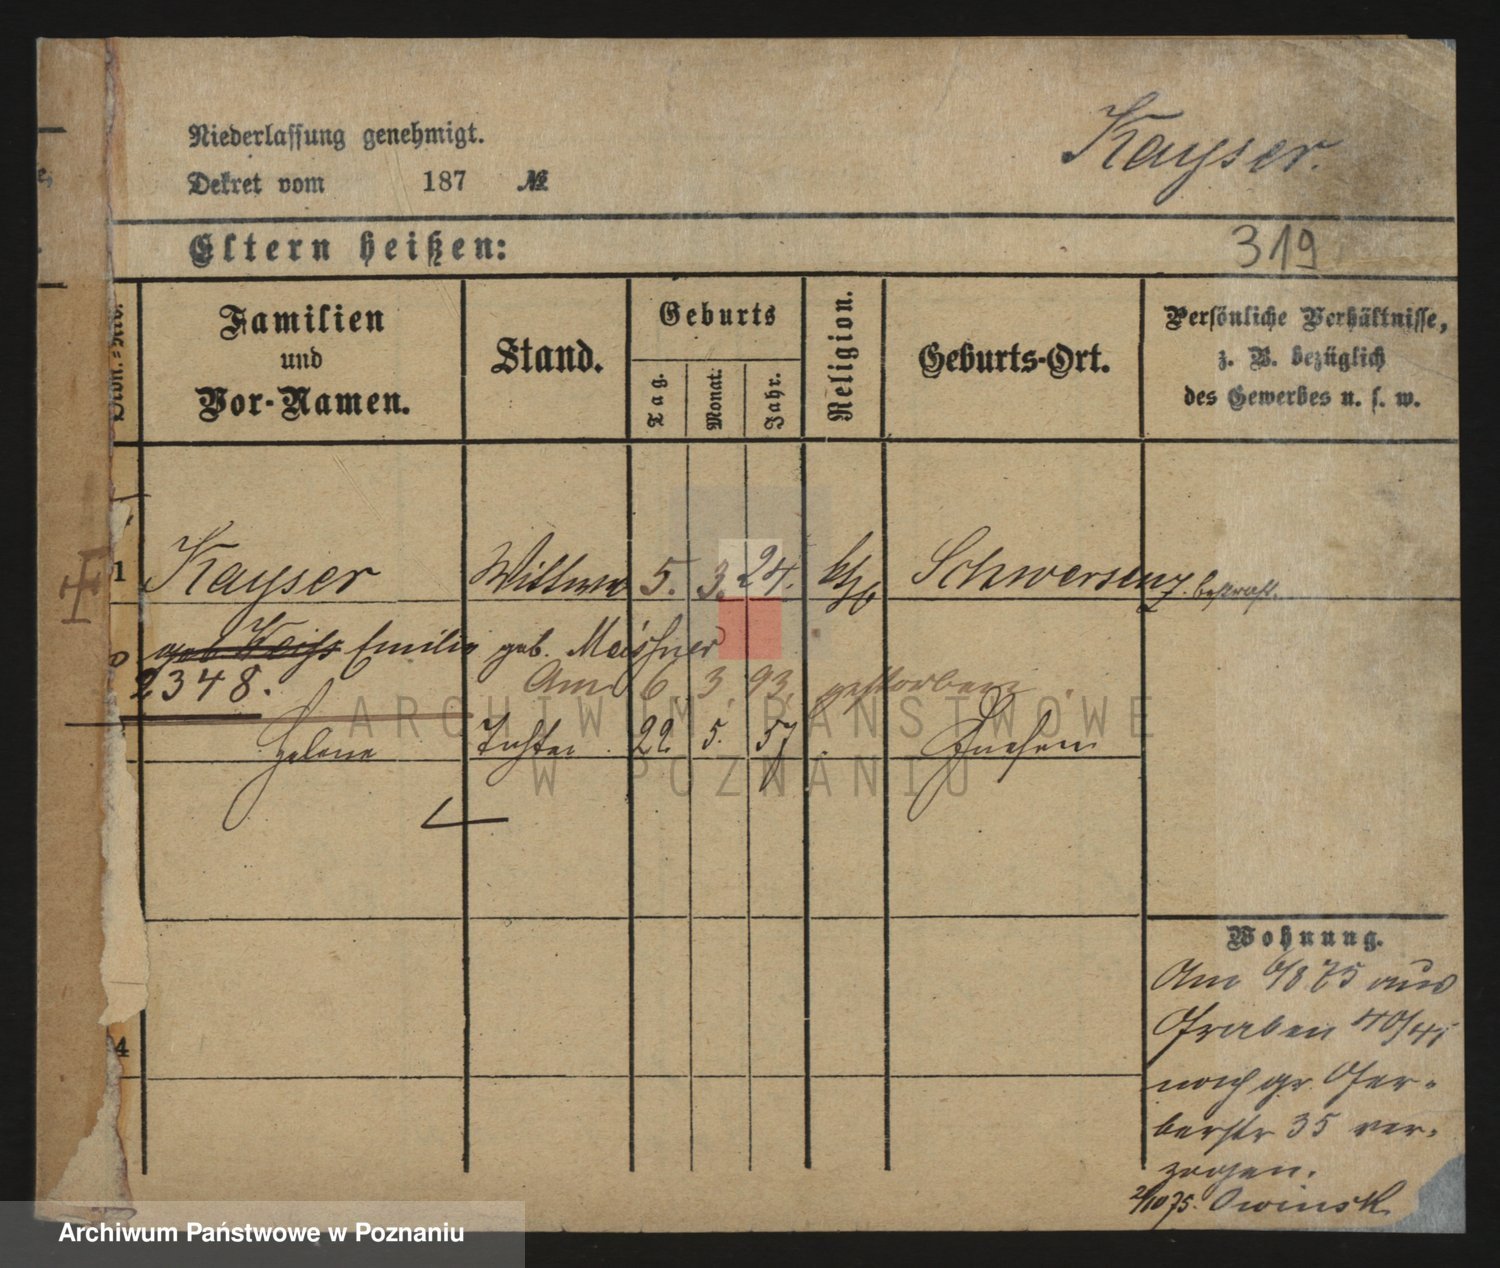 Kayser.
Niederlassung genehmigt.
Dekret vom 187 №
Eltern heißen:
319
Familien und Vor-Namen.
Stand.
Geburts
Tag.
Monat.
Jahr.
Religion.
Geburts-Ort.
Persönliche Verhältnisse,
z. B. bezüglich
des Gewerbes u. s. w.
1 Kayser Wittwe 5. 3. 24. Schwersenz.
geb. Weiss Emilie geb. Meissner
2348. Am 6. 3. 93. gestorben.
Helene Tochter 22. 5. 57 Gnesen
4
Wohnung.
Am 6/8 75 aus
Graben 40/41
nach gr. Ger-
berstr 35 ver-
zogen.
2/10 75. Owinsk
ARCHIWUM PAŃSTWOWE
W POZNANIU
Archiwum Państwowe w Poznaniu